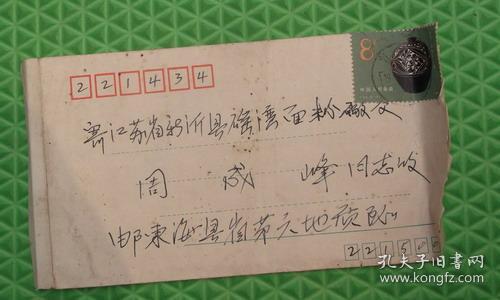 221434
8
中国人民邮政
寄江苏省新沂县窑湾面粉厂交
周成峰同志收
邮东海县省第六地质队
2215
孔夫子旧书网
www.kongfz.com